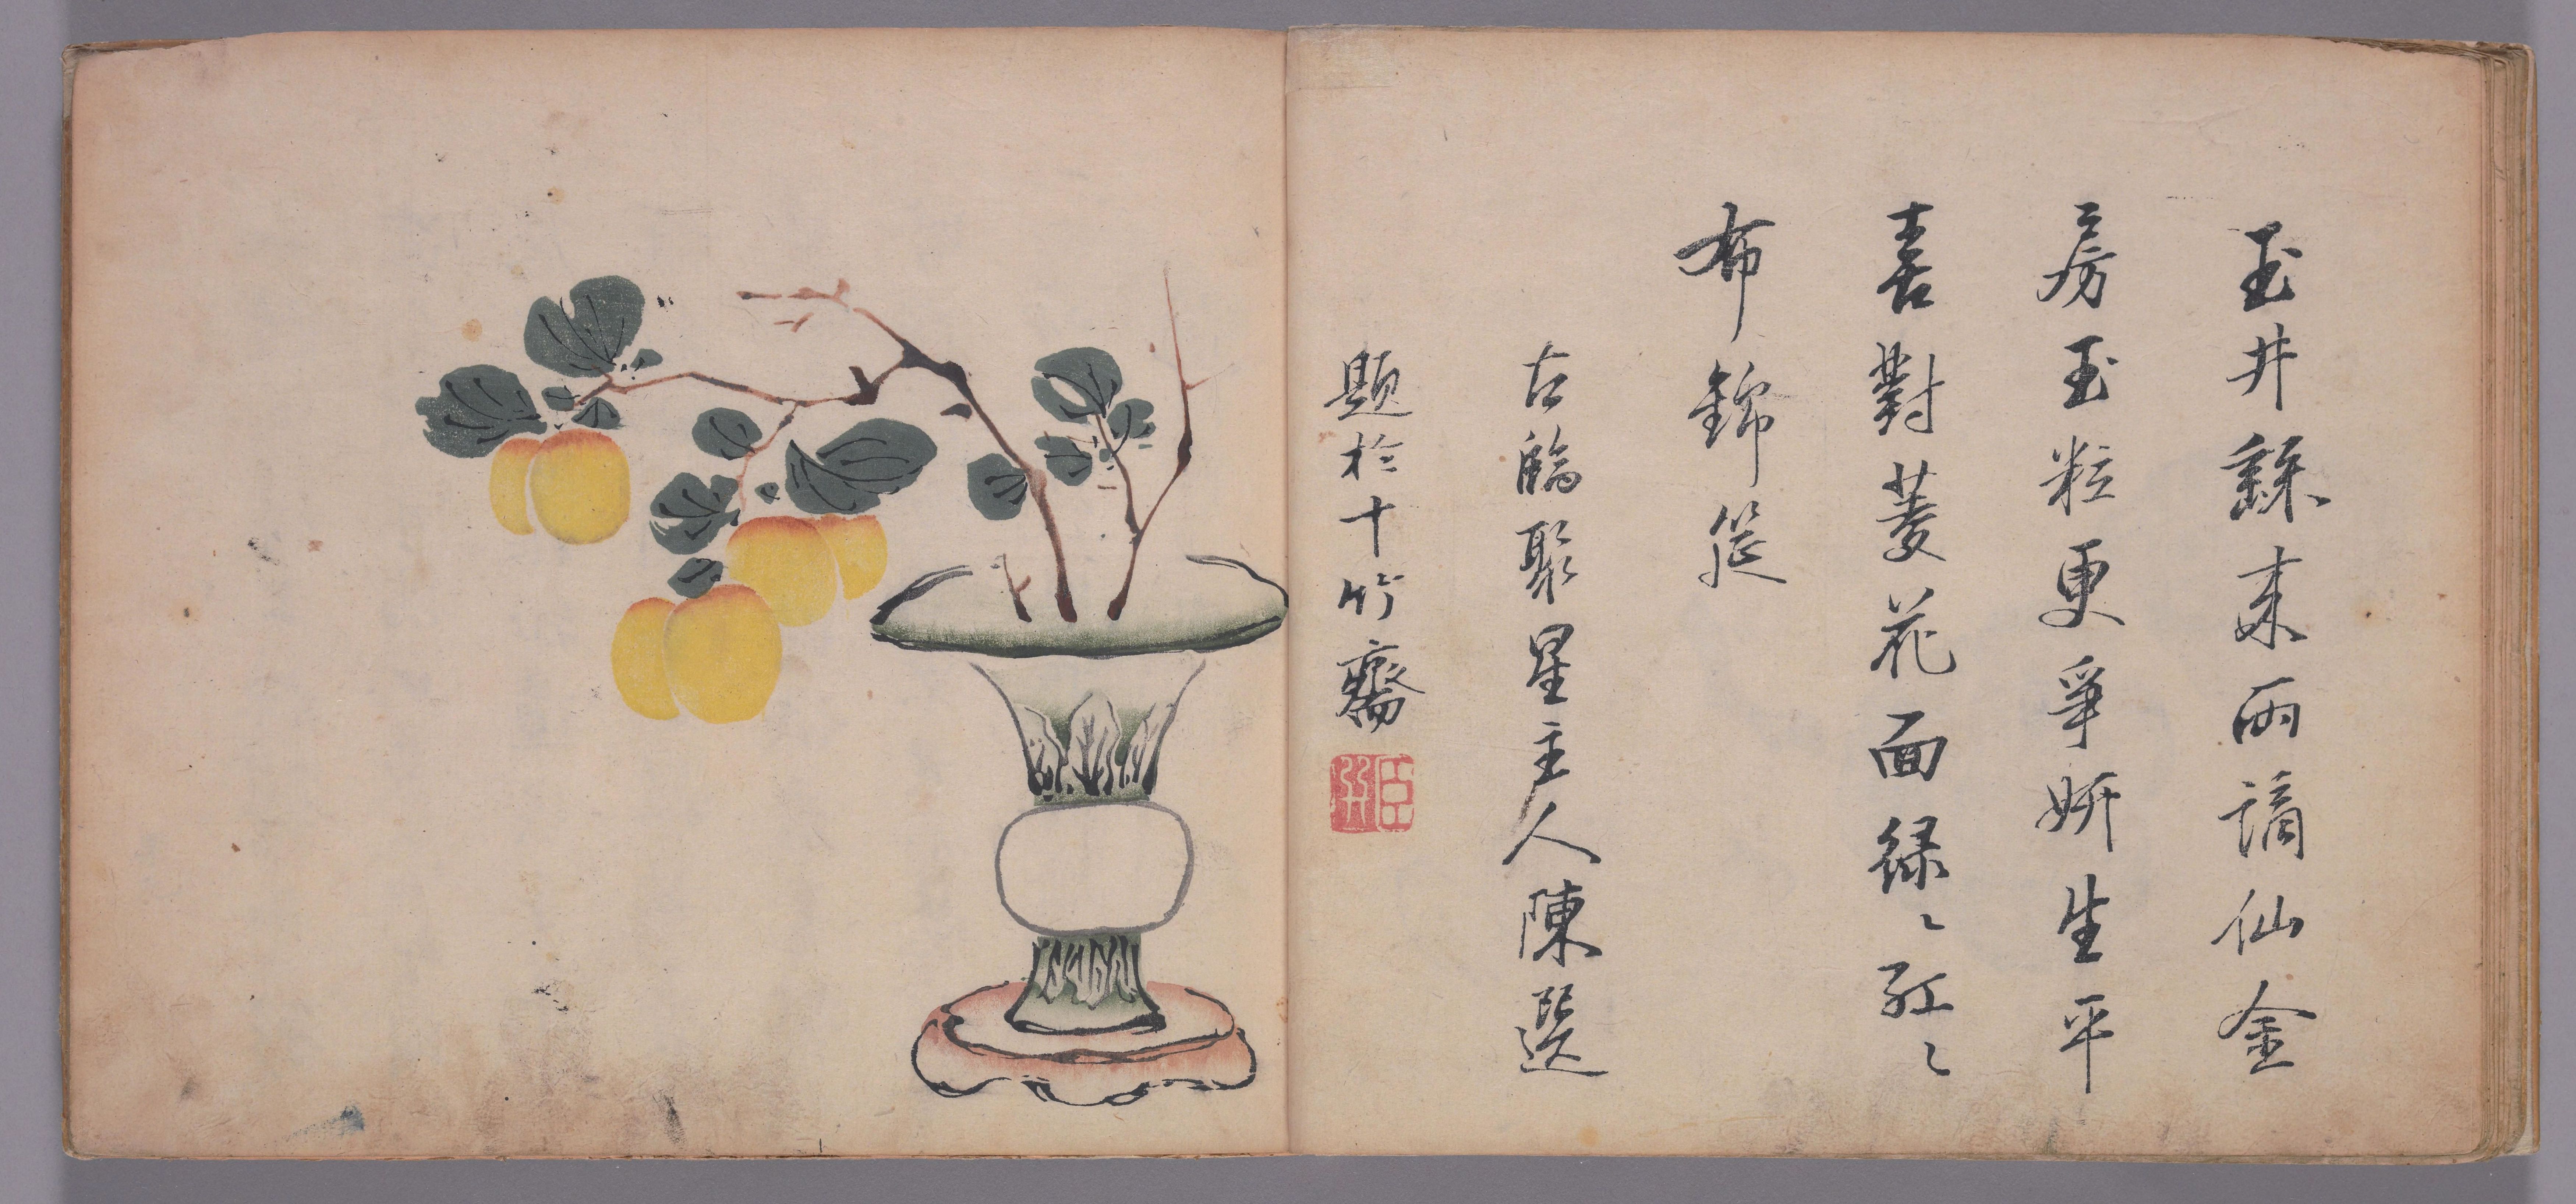 玉井繇来兩謫仙金
房玉粒更爭妍生平
喜對菱花面綠〻紅〻
布錦筵
古臨聚星主人陳選
題於十竹齋